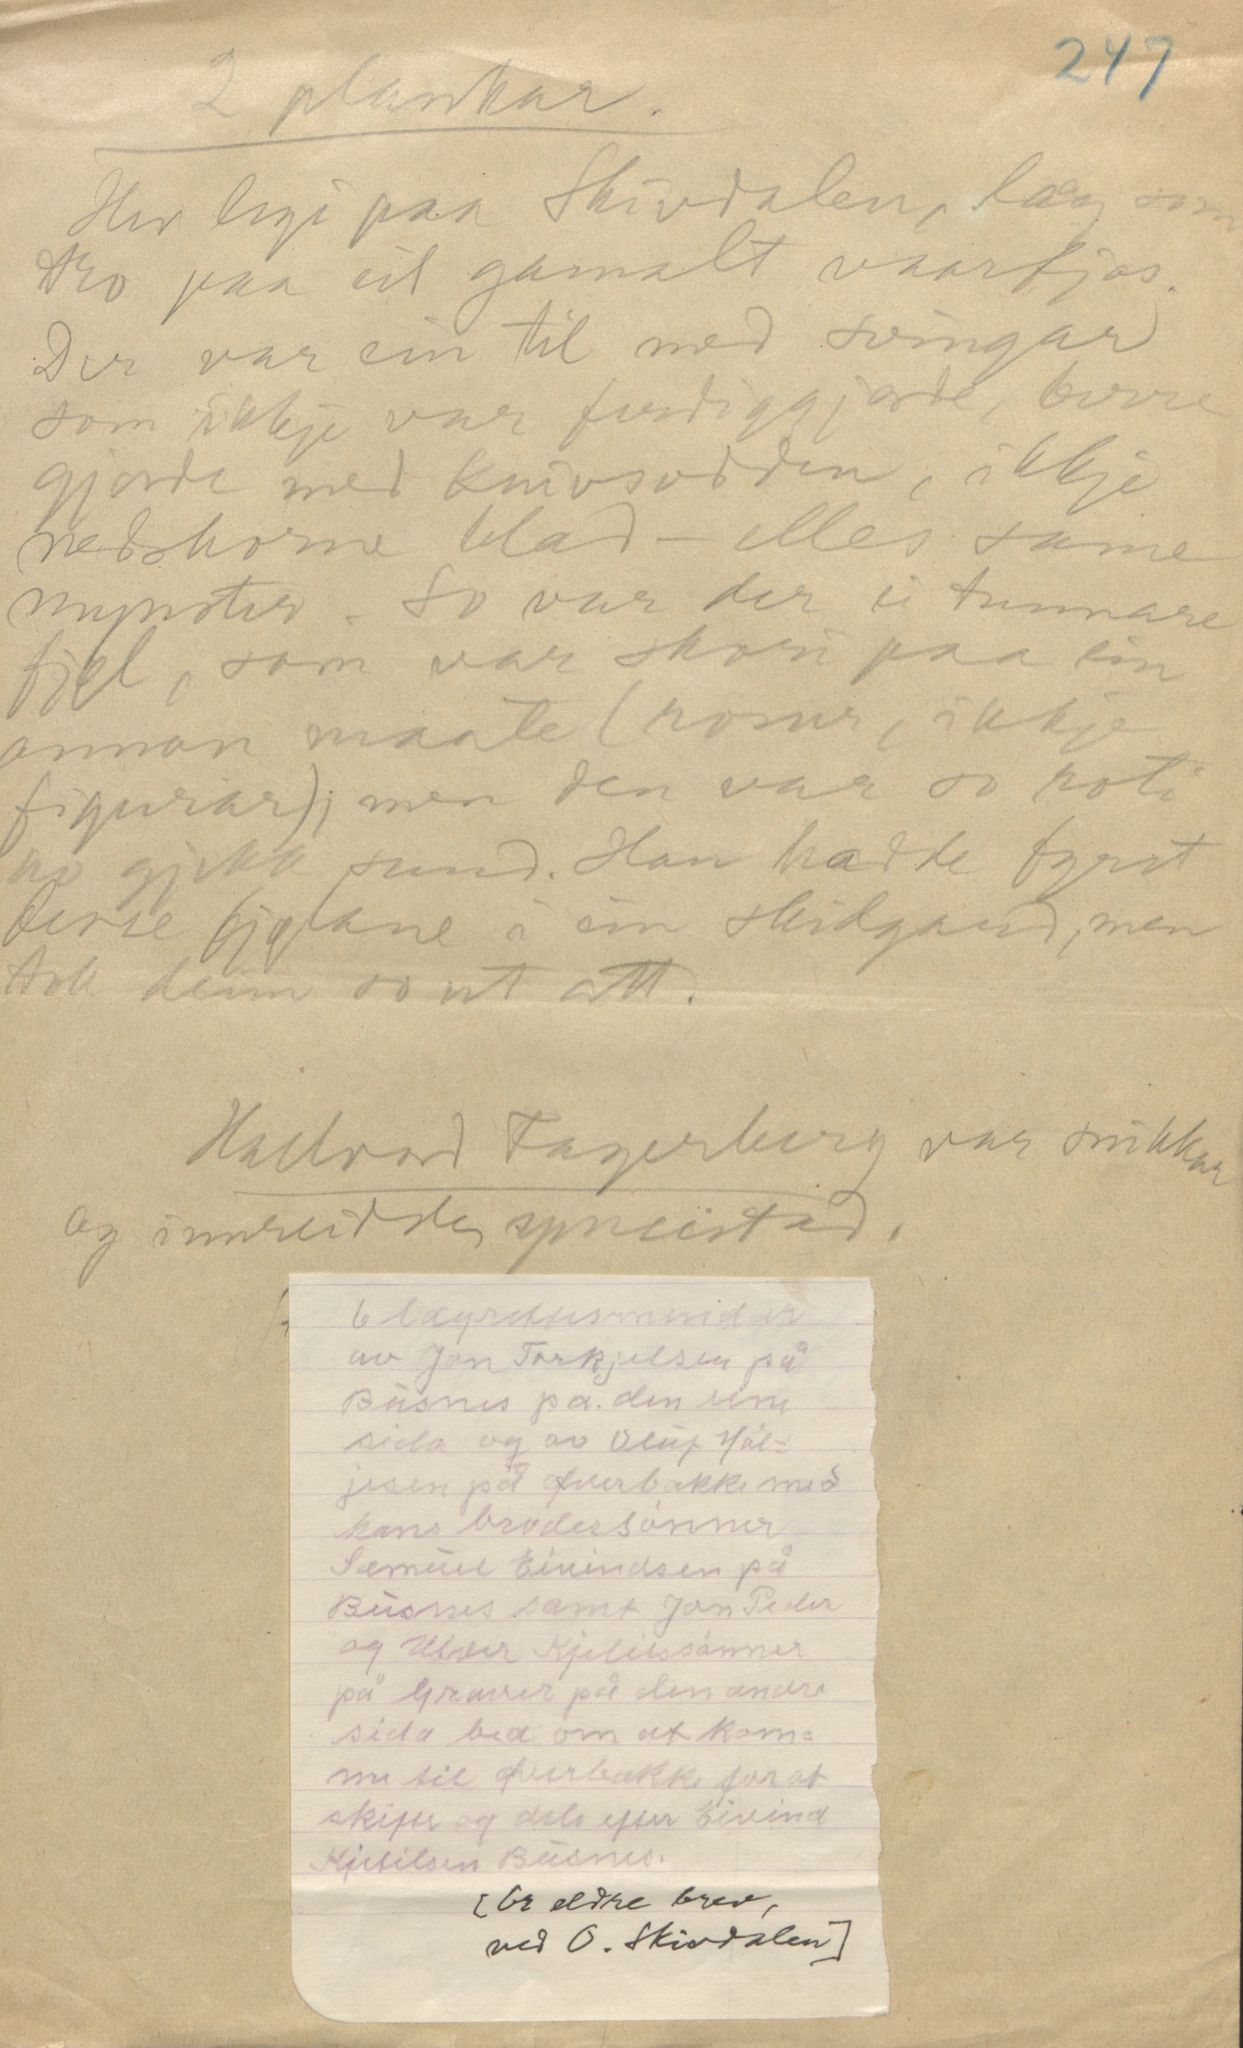 247
2 plankar.
Hev legi paa Skivdalen, laag som
tro paa eit gamalt vaarfjos.
Der var ein til med svingar
som ikkje var ferdiggjorde, berre
gjorde med knivsodden, ikkje
nedskorne blad - elles same
mynster. So var der ei tunnare
fjøl, som var skori paa ein
annan maate (rosur, ikkje
figurar); men den var so roti
ho gjekk sund. Han hadde fyrst
desse fjølane i ein skidgard, men
tok deim so ut att.
Hallvard Fagerberg var snikkar
og innreidde, syneistad.
av Jon Torkjelsen på
Büsnes på den eine
sida og av Olüf Höl-
jesen på Øverbakke med
hans brodersönner
Samüel Eivindsen på
Büsnes samt Jon Peder
og Halvor Kjetilssönner
på Graver på den andre
sida bed om at kom=
me til Øverbakke for at
skifte og dele efter Eivind
Kjetilsen Büsnes.
[Or eldre brev,
ved O. Skivdalen]